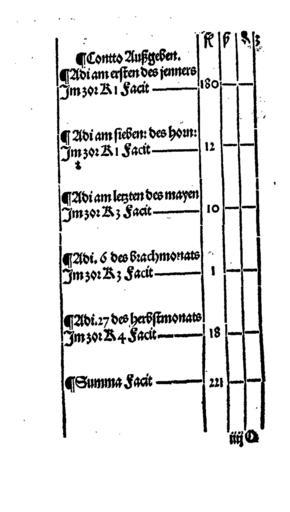 fl ß ₰ h
¶Contto Außgeben.
¶Adi am ersten des jenners
Jm Zoꝛ K 1 Facit 180
¶Adi am sieben: des hoꝛn:
Jm Zoꝛ K 1 Facit 12
¶Adi am letzten des mayen
Jm Zoꝛ K 3 Facit 10
¶Adi. 6 des brachmonats
Jm Zoꝛ K 3 Facit 1
¶Adi. 27 des herbstmonats
Jm Zoꝛ K 4 Facit 18
¶Summa Facit 221
iiij